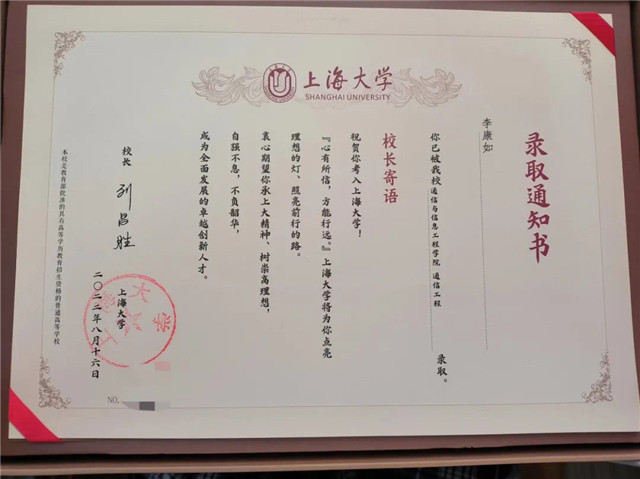 上海大学
SHANGHAI UNIVERSITY
录取通知书
李康如
你已被我校通信与信息工程学院 通信工程 录取。
校长寄语
祝贺你考入上海大学！
『心有所信，方能行远。』上海大学将为你点亮
理想的灯、照亮前行的路。
衷心期望你承上大精神、树崇高理想，
自强不息，不负韶华，
成为全面发展的卓越创新人才。
校长 刘昌胜
上海大学
二〇二二年八月十六日
本校是教育部批准的具有高等学历教育招生资格的普通高等学校
NO.